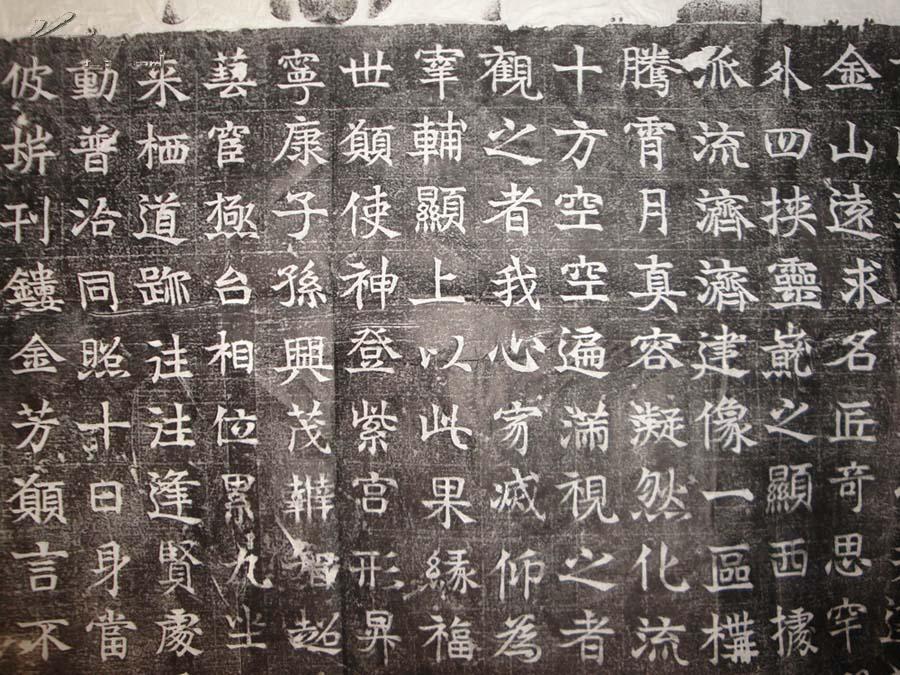 金山遠求名匠奇思罕
外四挾靈巖之顯西據
派流濟濟建像一區樸
騰霄月真容凝然化流
十方空空遍滿視之者
觀之者我心寂滅仰為
宰輔顯上以此果緣福
世願使神登紫宮形昇
寧康子孫興茂辯智超
藝宦極台相位累九坐
来栖道跡注注逢賢處
動普沿同照十日身當
彼斿刊鏤金芳願言不